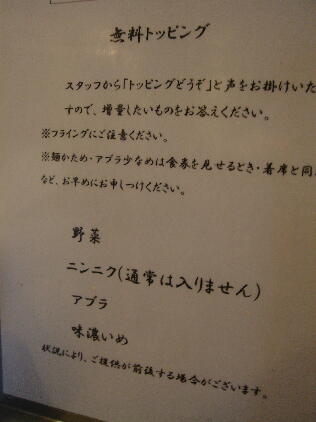 無料トッピング
スタッフから「トッピングどうぞ」と声をお掛けいた
すので、増量したいものをお答えください。
※フライングにご注意ください。
※麺かため・アブラ少なめは食券を見せるとき・着席と同
など、お早めにお申しつけください。
野菜
ニンニク(通常は入りません)
アブラ
味濃いめ
状況により、ご提供が前後する場合がございます。